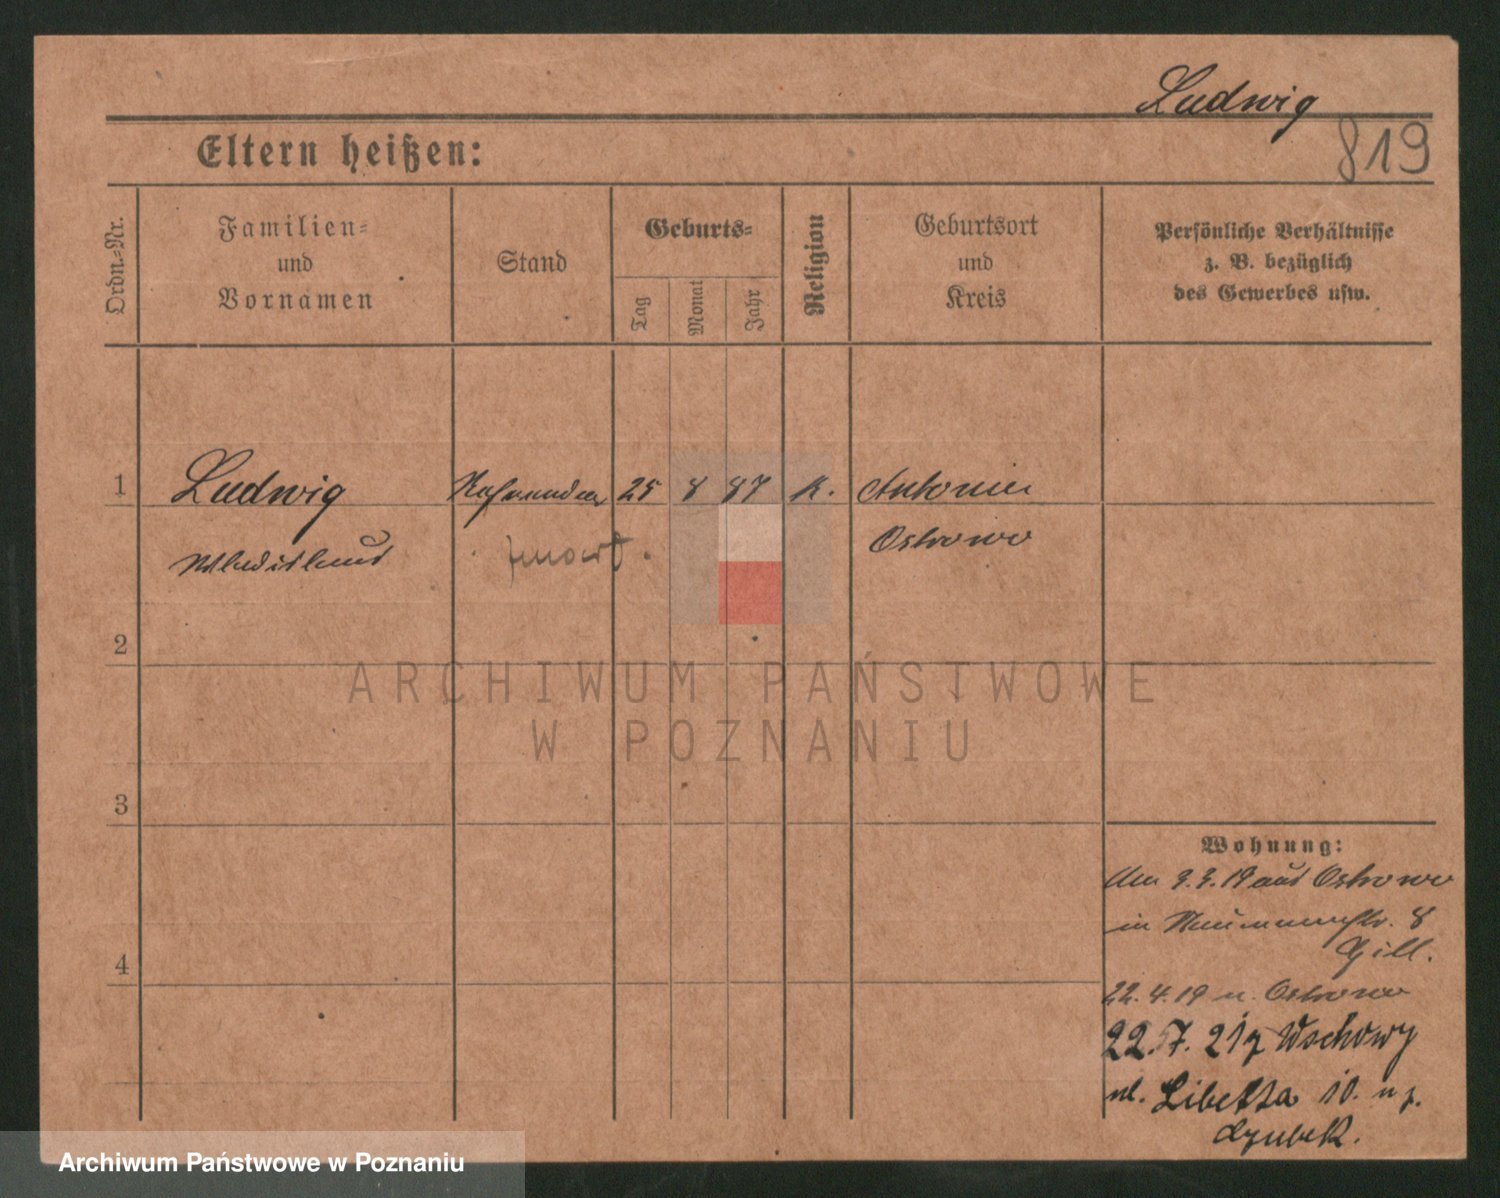 Ludwig
819
Eltern heißen:
Ordn.=Nr.
Familien=
und
Vornamen
Stand
Geburts=
Tag
Monat
Jahr
Religion
Geburtsort
und
Kreis
Persönliche Verhältnisse
z. B. bezüglich
des Gewerbes usw.
1 Ludwig Referendar 25 8 87 K. Antonin
Wladislaus Ostrowo
2
ARCHIWUM PAŃSTWOWE
W POZNANIU
3
Wohnung:
aus Ostrowo
in 8
4
22. 4. 19 n. Ostrowo
22. 7. 21 z Wschowy
ul. Libelta 10.
Archiwum Państwowe w Poznaniu